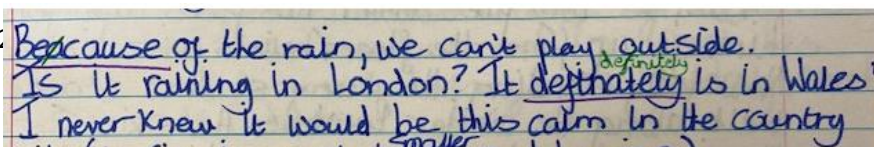 Beacause of the rain, we can't play outside.
definitely
Is it raining in London? It definately is in Wales
I never knew it would be this calm in the country
smaller